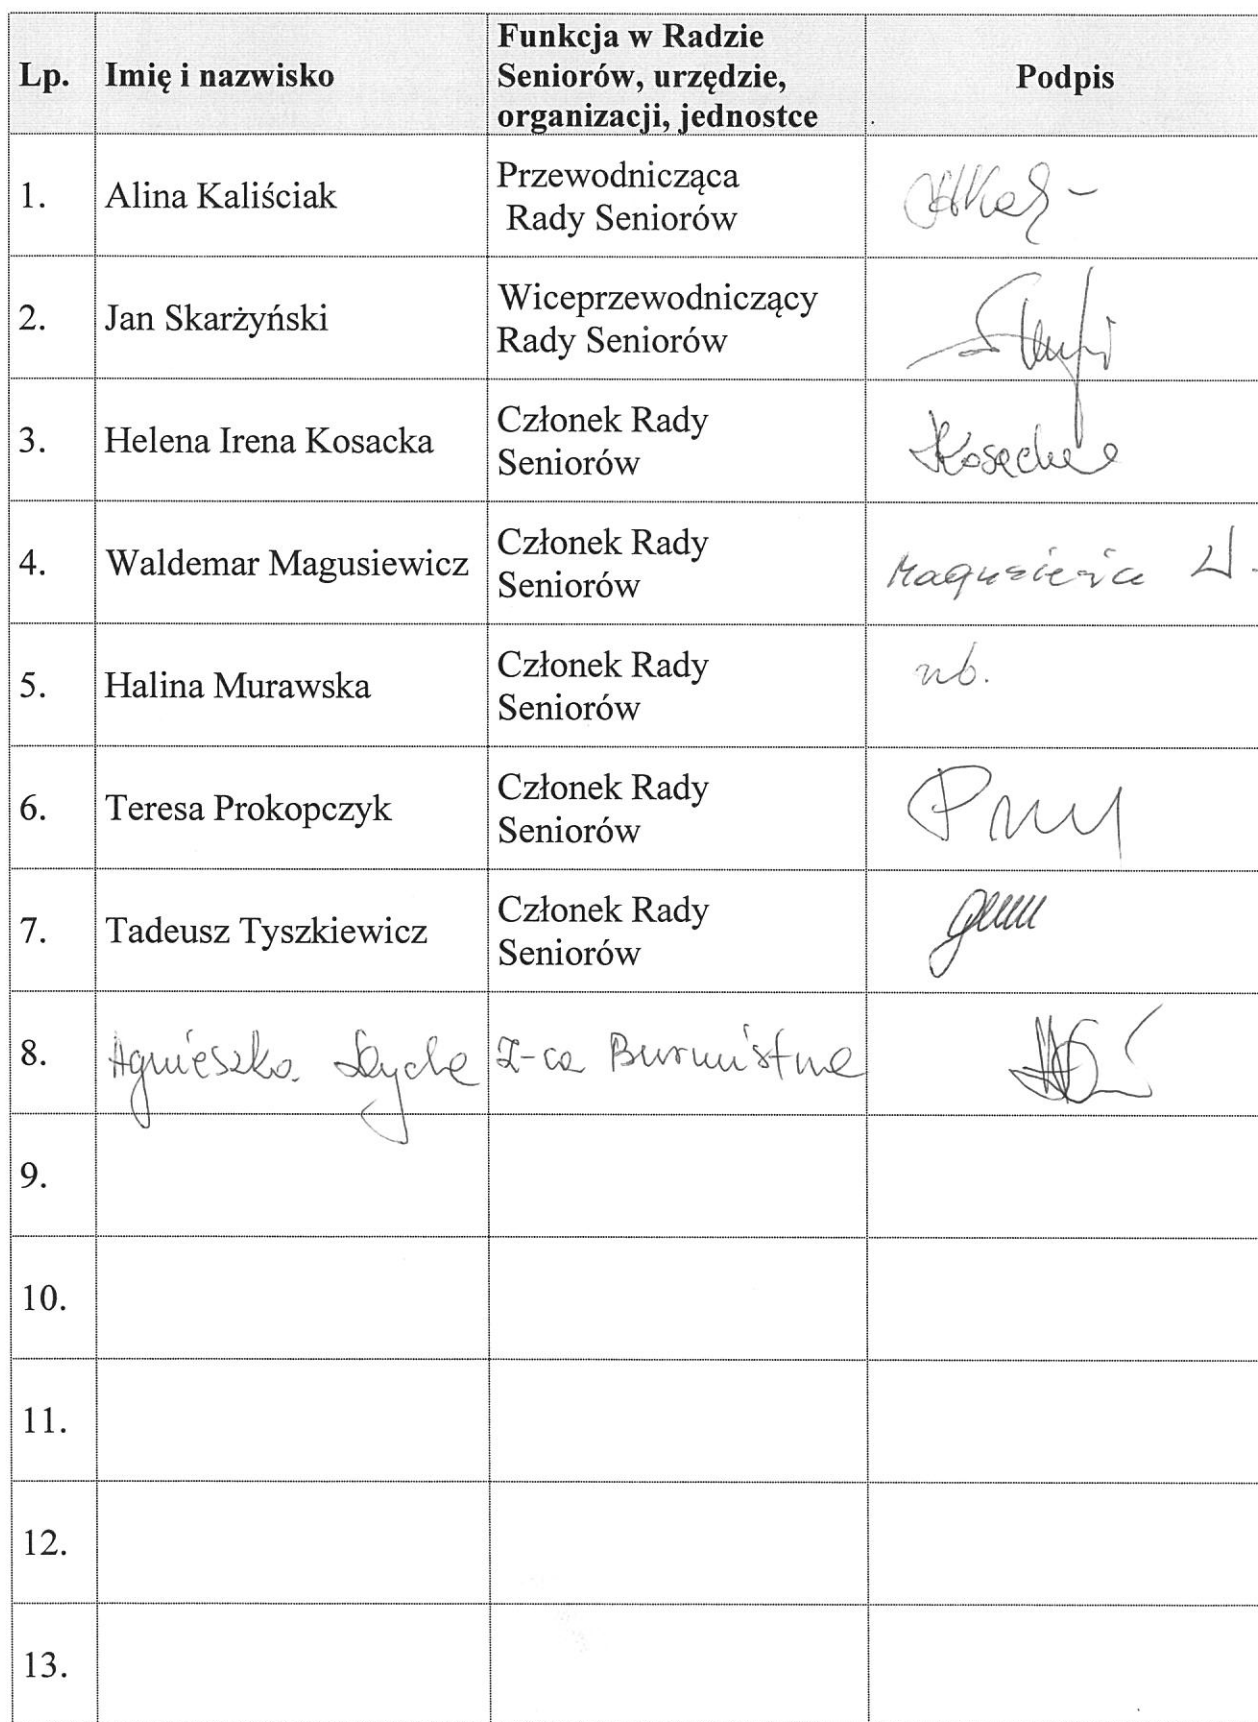 Lp.
Imię i nazwisko
Funkcja w Radzie
Seniorów, urzędzie,
organizacji, jednostce
Podpis
1.
Alina Kaliściak
Przewodnicząca
Rady Seniorów
2.
Jan Skarżyński
Wiceprzewodniczący
Rady Seniorów
3.
Helena Irena Kosacka
Członek Rady
Seniorów
Kosacka
4.
Waldemar Magusiewicz
Członek Rady
Seniorów
Magusiewicz W.
5.
Halina Murawska
Członek Rady
Seniorów
nb.
6.
Teresa Prokopczyk
Członek Rady
Seniorów
7.
Tadeusz Tyszkiewicz
Członek Rady
Seniorów
8.
Agnieszka
Z-ca Burmistrza
9.
10.
11.
12.
13.